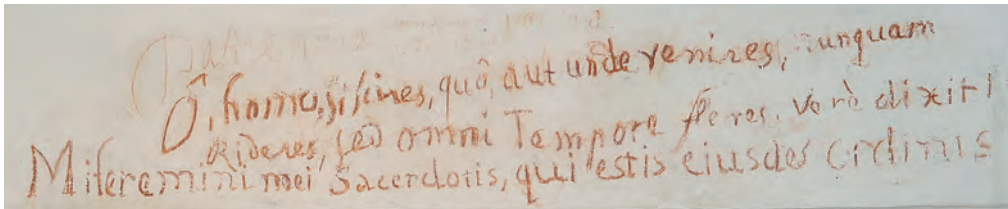 Ô, homo, si scires, quô, aut unde venires, nunquam
rideres, sed omni Tempore fleres. Verè dixit!
Miseremini mei Sacerdotis, qui estis eiusdeˢ ordinis